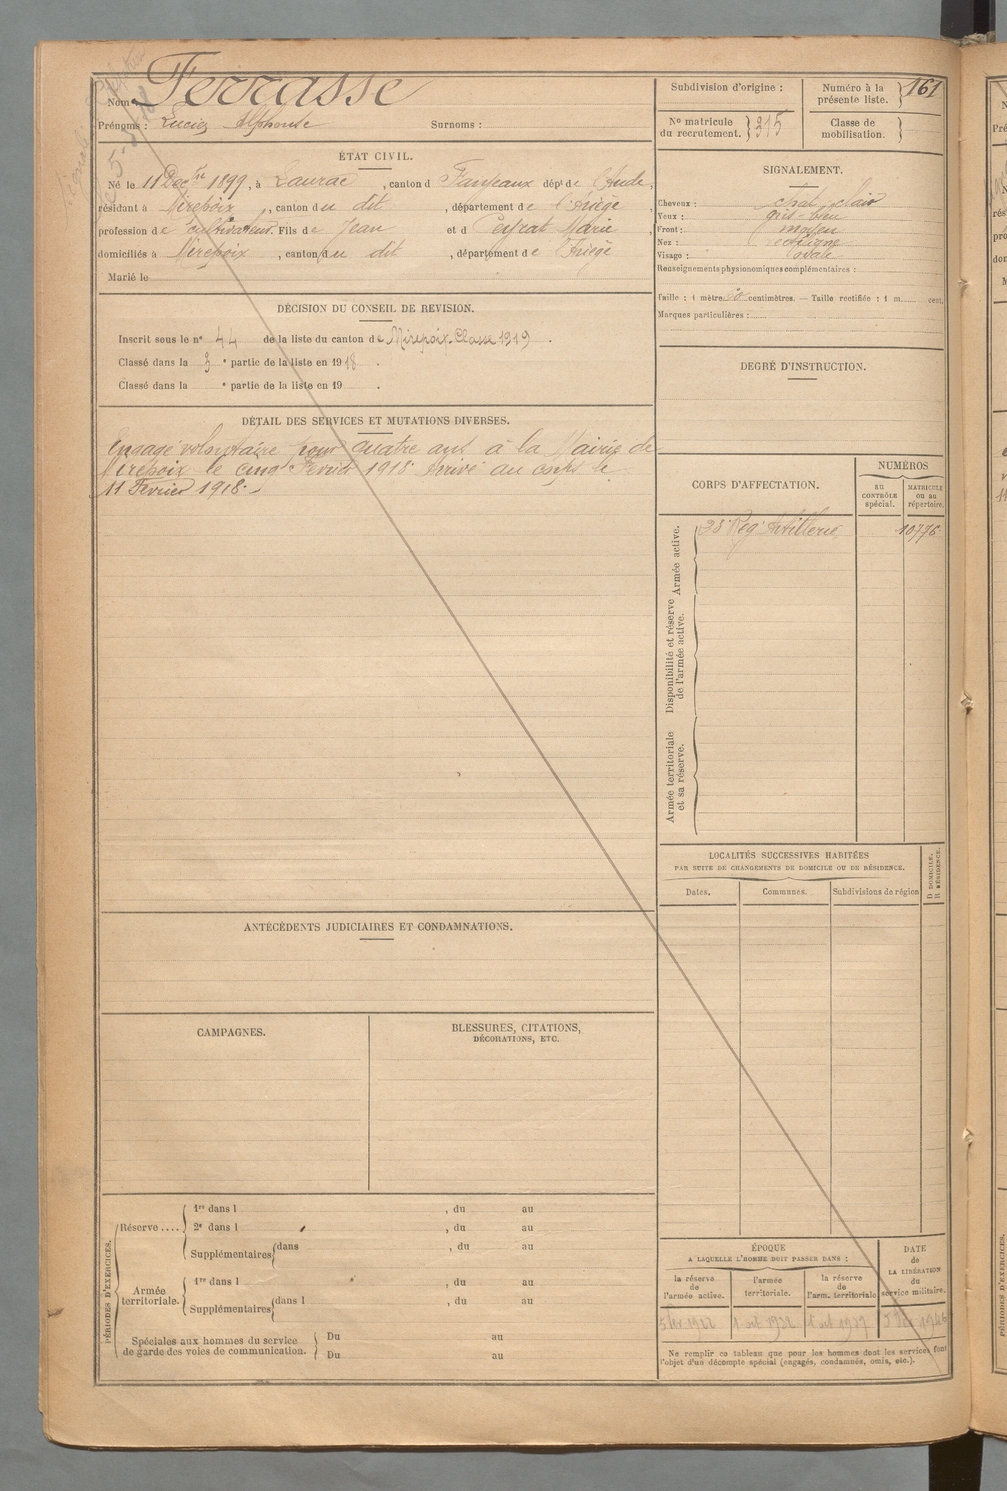 Nom : Terrasse
Prénoms : Lucien Alphonse Surnoms :
ÉTAT CIVIL.
Né le 11 Décbre 1899, à Laurac, canton d Fanjeaux dépt de l'Aude,
résidant à Mirepoix, canton du dit, département de l'Ariège,
profession de cultivateur. Fils de Jean et d Peyrat Marie,
domiciliés à Mirepoix, canton du dit, département de l'Ariège
Marié le
DÉCISION DU CONSEIL DE REVISION.
Inscrit sous le n° 44 de la liste du canton de Mirepoix. Classe 1919.
Classé dans la 3e partie de la liste en 1918.
Classé dans la e partie de la liste en 19 .
DÉTAIL DES SERVICES ET MUTATIONS DIVERSES.
Engagé volontaire pour quatre ans à la Mairie de
Mirepoix le cinq Février 1918. Arrivé au corps le
11 Février 1918.-
ANTÉCÉDENTS JUDICIAIRES ET CONDAMNATIONS.
CAMPAGNES.
BLESSURES, CITATIONS,
DÉCORATIONS, ETC.
PÉRIODES D'EXERCICES.
Réserve ....
1re dans l , du au
2e dans l , du au
Supplémentaires dans , du au
Armée
territoriale.
1re dans l , du au
Supplémentaires dans l , du au
Spéciales aux hommes du service
de garde des voies de communication.
Du au
Du au
Subdivision d'origine :
Numéro à la
présente liste. 161
No matricule
du recrutement. 315
Classe de
mobilisation.
SIGNALEMENT.
Cheveux : chat clair
Yeux : gris-bleu
Front : moyen
Nez : rectiligne
Visage : ovale
Renseignements physionomiques complémentaires :
Taille : 1 mètre centimètres. — Taille rectifiée : 1 m. cent.
Marques particulières :
DEGRÉ D'INSTRUCTION.
CORPS D'AFFECTATION.
NUMÉROS
au
CONTRÔLE
spécial.
MATRICULE
ou au
répertoire.
Armée active.
Reg. Artillerie 10776
Disponibilité et réserve
de l'armée active.
Armée territoriale
et sa réserve.
LOCALITÉS SUCCESSIVES HABITÉES
PAR SUITE DE CHANGEMENTS DE DOMICILE OU DE RÉSIDENCE.
D. DOMICILE.
R. RÉSIDENCE.
Dates. Communes. Subdivisions de région
ÉPOQUE
A LAQUELLE L'HOMME DOIT PASSER DANS :
la réserve
de
l'armée active.
l'armée
territoriale.
la réserve
de
l'arm. territoriale
DATE
de
LA LIBÉRATION
du
service militaire.
5 fév 1922 1 oct 1932 1 oct 1937 1946
Ne remplir ce tableau que pour les hommes dont les services font
l'objet d'un décompte spécial (engagés, condamnés, omis, etc.).